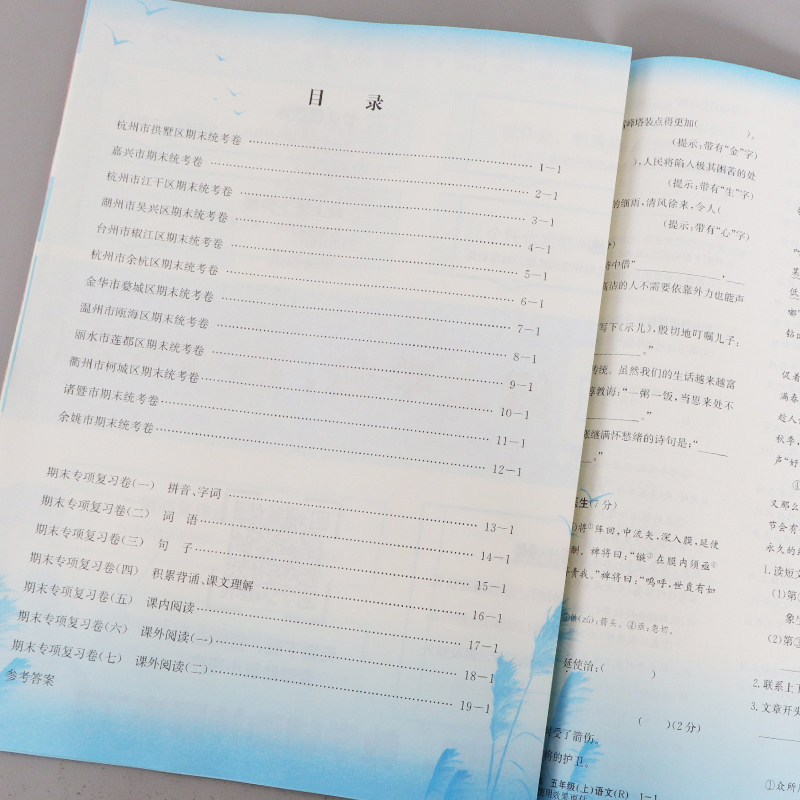 目 录
杭州市拱墅区期末统考卷 1-1
嘉兴市期末统考卷 2-1
杭州市江干区期末统考卷 3-1
湖州市吴兴区期末统考卷 4-1
台州市椒江区期末统考卷 5-1
杭州市余杭区期末统考卷 6-1
金华市婺城区期末统考卷 7-1
温州市瓯海区期末统考卷 8-1
丽水市莲都区期末统考卷 9-1
衢州市柯城区期末统考卷 10-1
诸暨市期末统考卷 11-1
余姚市期末统考卷 12-1
期末专项复习卷(一) 拼音、字词 13-1
期末专项复习卷(二) 词 语 14-1
期末专项复习卷(三) 句 子 15-1
期末专项复习卷(四) 积累背诵、课文理解 16-1
期末专项复习卷(五) 课内阅读 17-1
期末专项复习卷(六) 课外阅读(一) 18-1
期末专项复习卷(七) 课外阅读(二) 19-1
参考答案
峰塔装点得更加( )。
(提示:带有“金”字)
),人民将陷入极其困苦的处
(提示:带有“生”字)
的细雨,清风徐来,令人(
(提示:带有“心”字)
中借”
高洁的人不需要依靠外力也能声
写下《示儿》,殷切地叮嘱儿子:
。”
统。虽然我们的生活越来越富
教诲:“一粥一饭,当思来处不
。”
继满怀愁绪的诗句是:“
。”
医生(7分)
将①阵回,中流矢,深入膜,延使
裨将曰:“镞②在膜内须亟④
责我。”裨将曰:“呜呼,世直有如
(zú):箭头。④亟:急切。
延使治:( )
( )(2分)
受了箭伤。
将的护卫。
五年级(上)语文(R) 1-1
低
嘟”
钻
促着
满春
趁人
秋季,
声“好
①
又那么
节会有
永久的
1.读短文
(1)第
象
(2)第③
2.联系上
3.文章开头
①众所